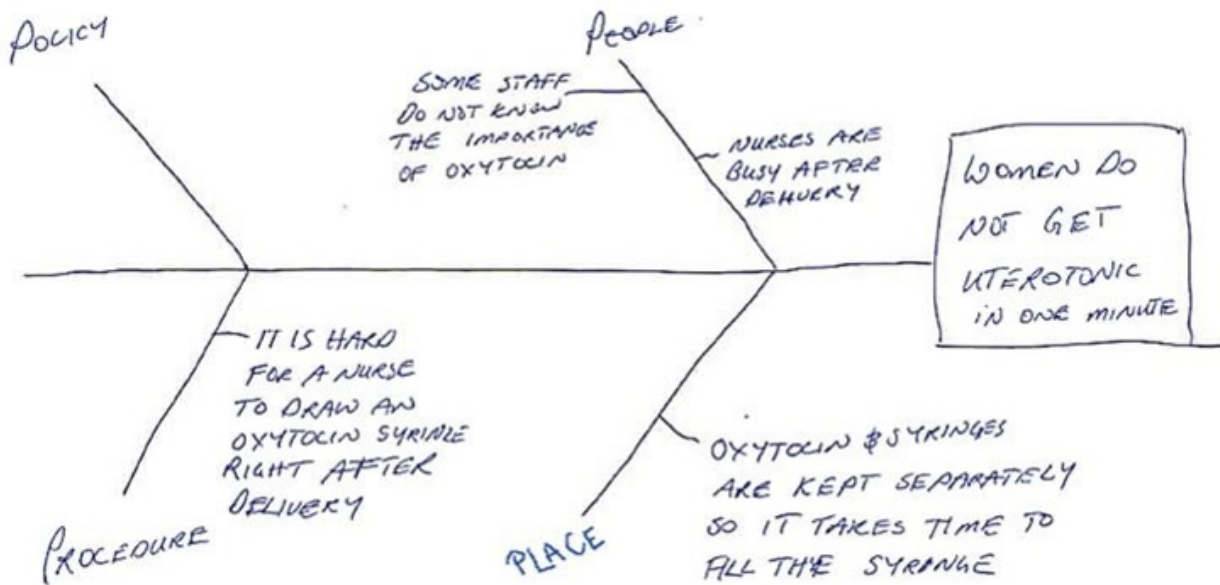 POLICY
PEOPLE
SOME STAFF
DO NOT KNOW
THE IMPORTANCE
OF OXYTOCIN
NURSES ARE
BUSY AFTER
DELIVERY
WOMEN DO
NOT GET
UTEROTONIC
IN ONE MINUTE
IT IS HARD
FOR A NURSE
TO DRAW AN
OXYTOCIN SYRINGE
RIGHT AFTER
DELIVERY
PROCEDURE
OXYTOCIN & SYRINGES
ARE KEPT SEPARATELY
SO IT TAKES TIME TO
FILL THE SYRANGE
PLACE